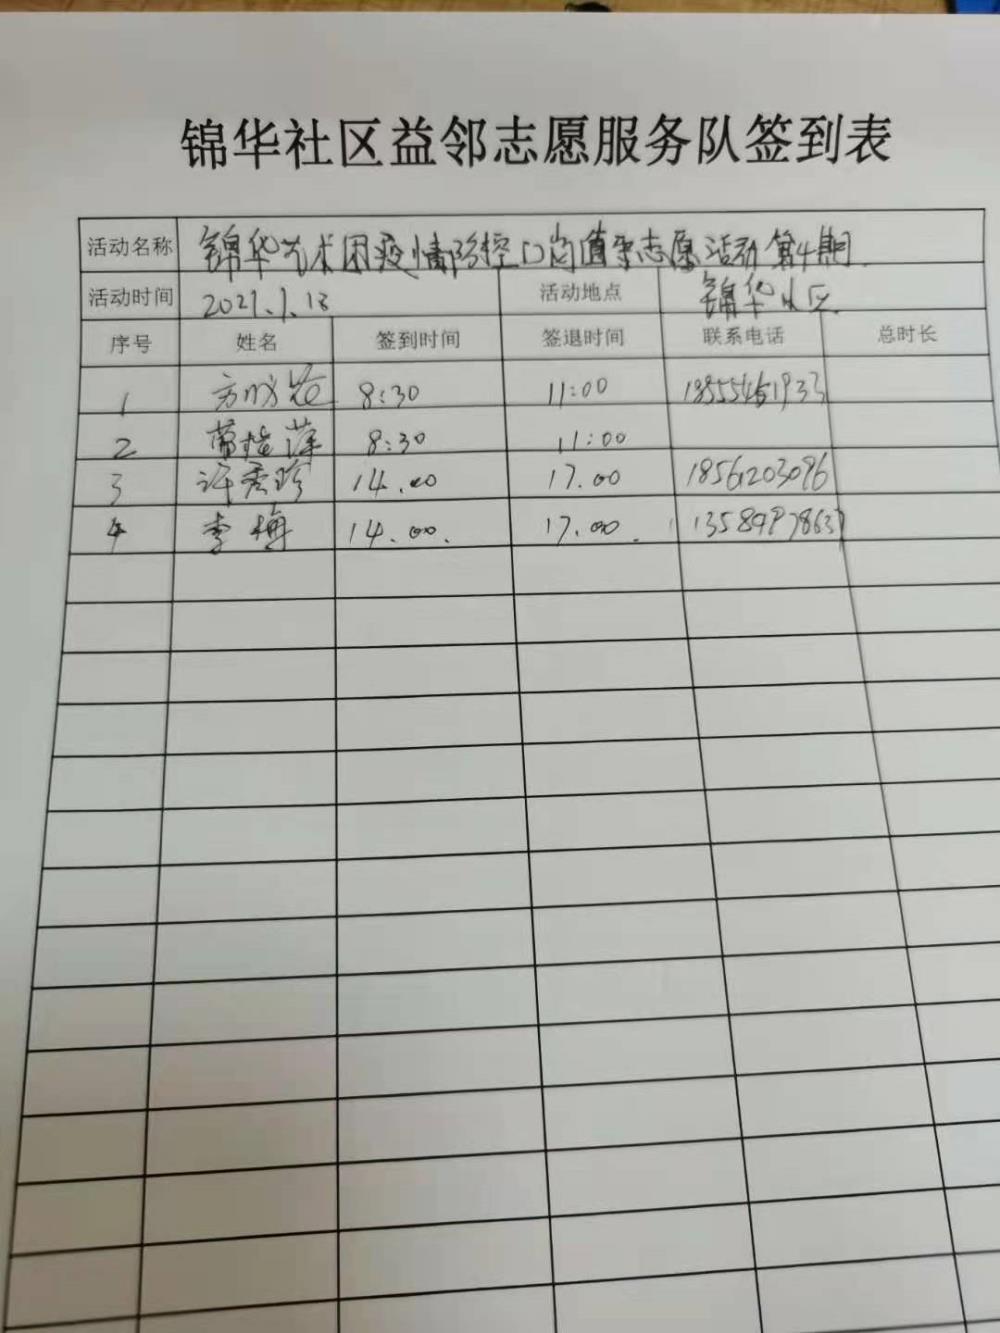 锦华社区益邻志愿服务队签到表
活动名称 锦华艺术团疫情防控口岗值率志愿活动第4期.
活动时间 2021.1.18 活动地点 锦华小区
序号 姓名 签到时间 签退时间 联系电话 总时长
1 8:30 11:00
2 8:30 11:00
3 许秀珍 14.00 17.00 18561203096
4 李梅 14.00. 17.00.